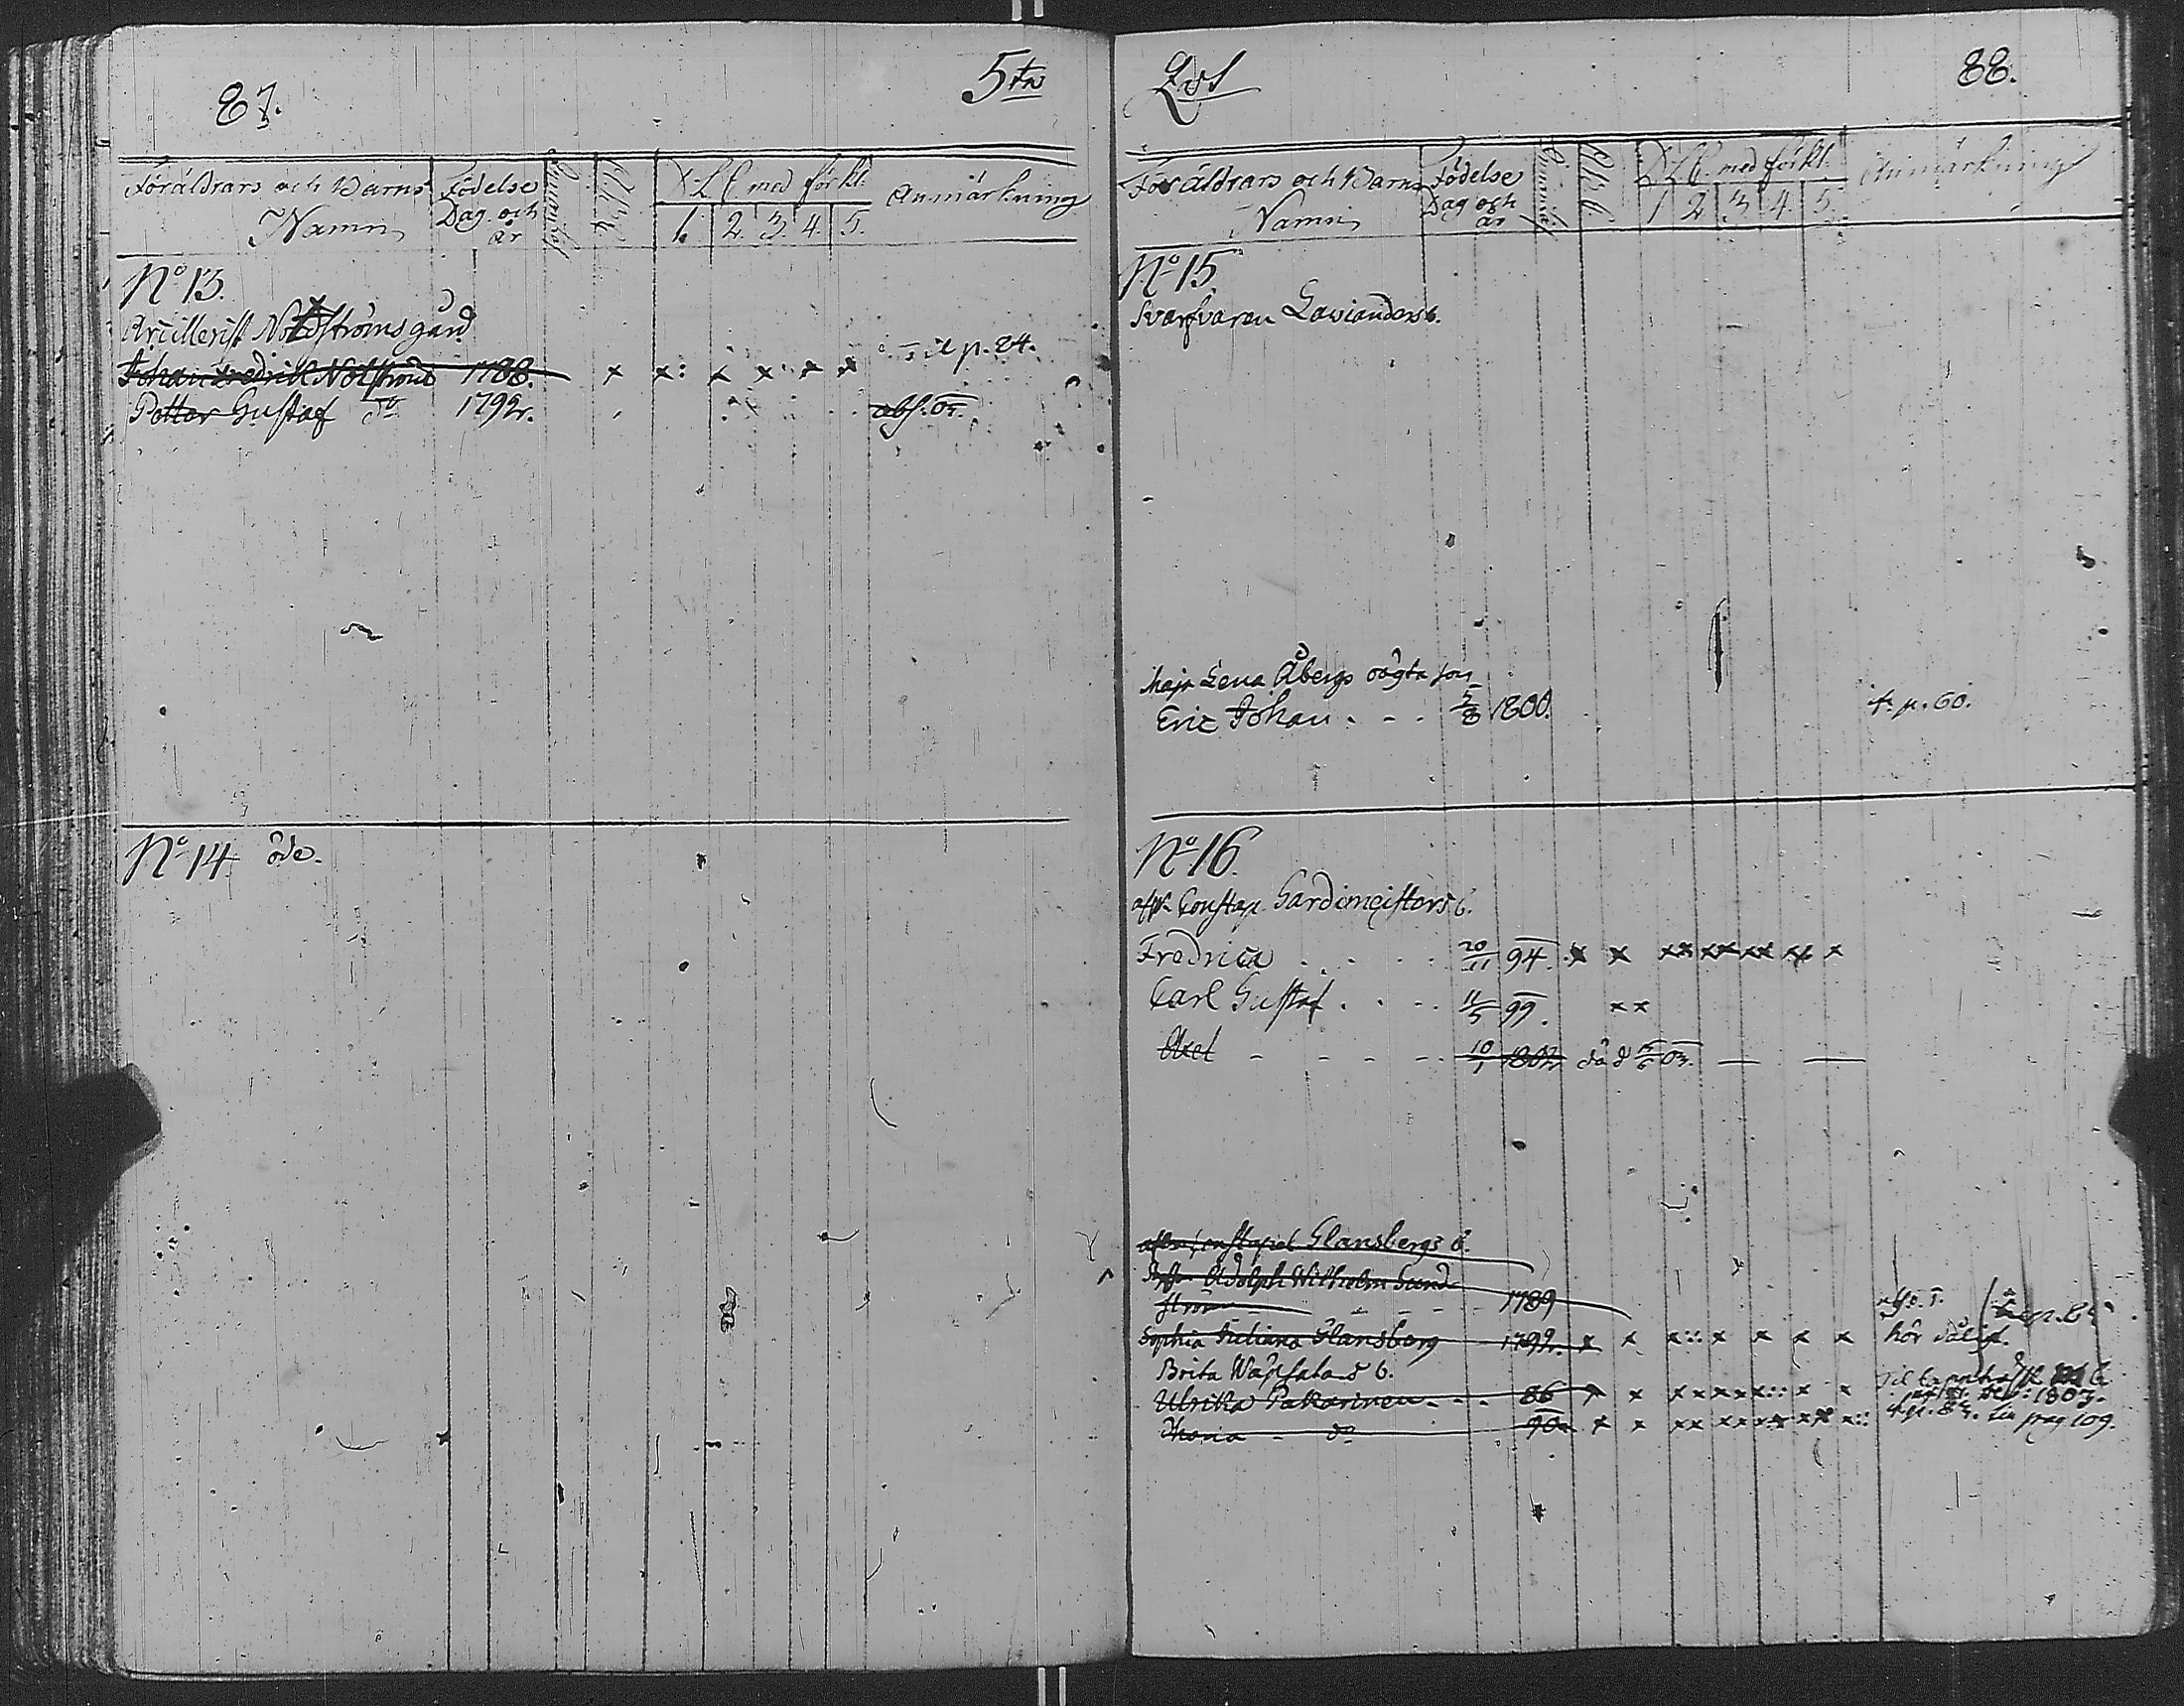 87.
5te
Föräldrars och Barns
Namn
Födelse
Dag och
år
D. L. C. med förkl.
1. 2. 3. 4. 5.
Anmärkning
No 13.
Artillerist Nordströms gård
Johan Fredrik Nolström 1788. x x: x x x x til p. 84.
Petter Gustaf do 1792. abs. 03.
No 14 öde.
Qvt
88.
Föräldrars och Barns
Namn
Födelse
Dag och
år
D. L. C. med förkl.
1 2 3 4. 5.
Anmärkning
No 15
Svarfvaren Lavianders b.
Maja Lena Åbergs oägta son
Eric Johan . - . 5/8 1800. f. p. 60.
No 16.
Constap. Gardemeisters b.
Fredrica . . . . 20/11 94. x x xx xx xx xx x
Carl Gustaf . . . 11/5 99. xx
Axel - - - - 10/1 1802 död 15/6 03. — —
Constapel Glansbergs b.
Adolph Wilhelm Sund-
ström - - - - 1789
Sophia Juliana Glansberg 1792. x x x:: x x x x hör
Brita b.
Ulrika Pakarinen - - . 86 x x x x x x x:: x x 1803.
do 90 x x xx x x x x x x x:: pag 109.